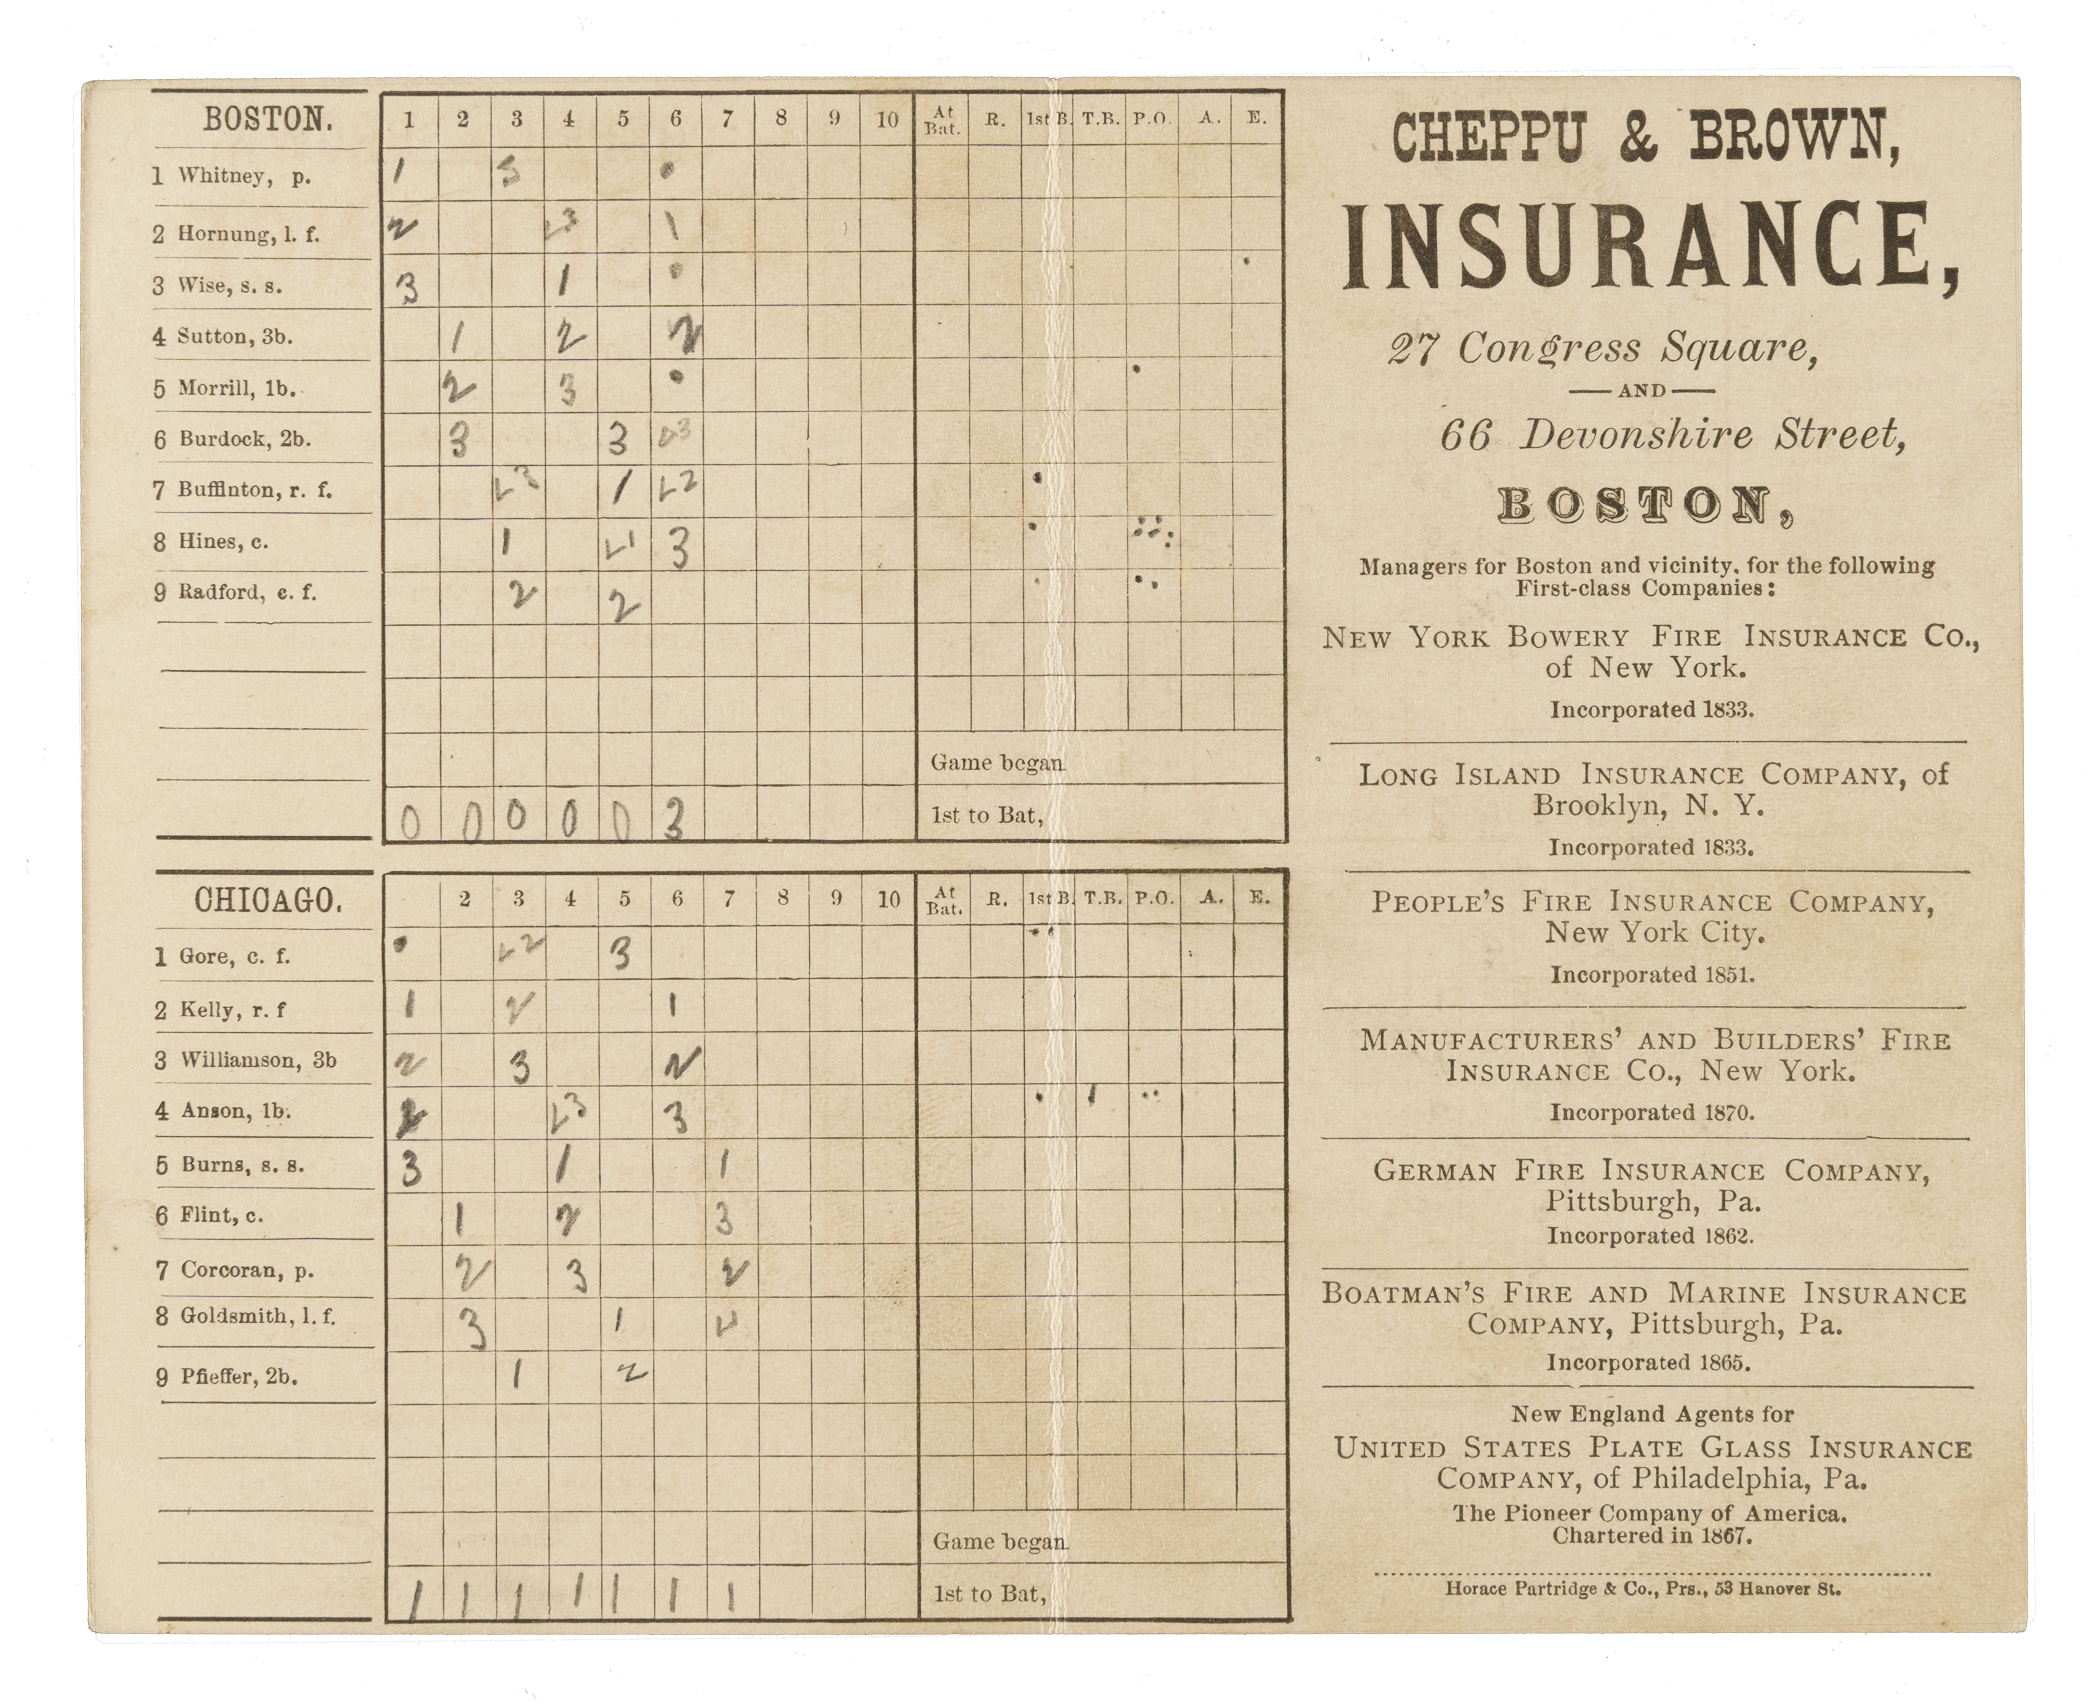 BOSTON. 1 2 3 4 5 6 7 8 9 10 At Bat. R. 1st B. T.B. P.O. A. E.
1 Whitney, p. 1 S •
2 Hornung, l. f. 2 L3 1
3 Wise, s. s. 3 1 •
4 Sutton, 3b. 1 2 2
5 Morrill, 1b. 2 3 •
6 Burdock, 2b. 3 3 L3
7 Buffinton, r. f. L3 1 L2
8 Hines, c. 1 L1 3
9 Radford, c. f. 2 2
Game began
0 0 0 0 0 3 1st to Bat,
CHICAGO. 2 3 4 5 6 7 8 9 10 At Bat. R. 1st B. T.B. P.O. A. E.
1 Gore, c. f. • L2 3
2 Kelly, r. f 1 2 1
3 Williamson, 3b 2 3 2
4 Anson, 1b. L3 3
5 Burns, s. s. 3 1 1
6 Flint, c. 1 2 3
7 Corcoran, p. 2 3 2
8 Goldsmith, l. f. 3 1
9 Pfieffer, 2b. 1 2
Game began
1 1 1 1 1 1 1 1st to Bat,
CHEPPU & BROWN,
INSURANCE,
27 Congress Square,
AND
66 Devonshire Street,
BOSTON,
Managers for Boston and vicinity, for the following
First-class Companies:
NEW YORK BOWERY FIRE INSURANCE CO.,
of New York.
Incorporated 1833.
LONG ISLAND INSURANCE COMPANY, of
Brooklyn, N. Y.
Incorporated 1833.
PEOPLE'S FIRE INSURANCE COMPANY,
New York City.
Incorporated 1851.
MANUFACTURERS' AND BUILDERS' FIRE
INSURANCE CO., New York.
Incorporated 1870.
GERMAN FIRE INSURANCE COMPANY,
Pittsburgh, Pa.
Incorporated 1862.
BOATMAN'S FIRE AND MARINE INSURANCE
COMPANY, Pittsburgh, Pa.
Incorporated 1865.
New England Agents for
UNITED STATES PLATE GLASS INSURANCE
COMPANY, of Philadelphia, Pa.
The Pioneer Company of America.
Chartered in 1867.
Horace Partridge & Co., Prs., 53 Hanover St.